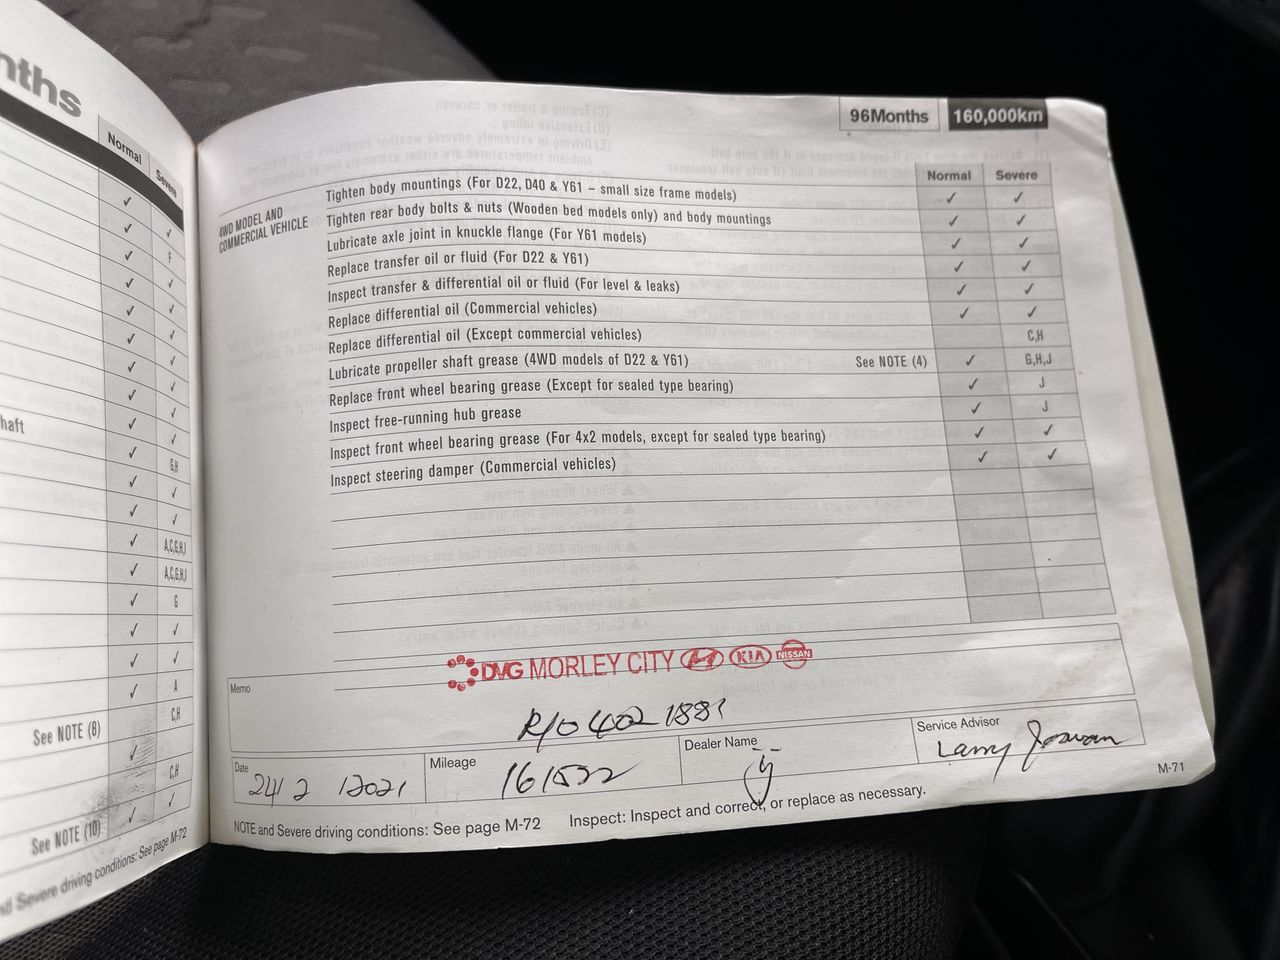 nths
Normal
Severe
✓
✓ ✓
✓ F
✓ ✓
✓ ✓
✓ ✓
✓ ✓
✓ ✓
haft
✓ ✓
✓ G,H
✓ ✓
✓ ✓
✓ A,C,G,H,I
✓ A,C,G,H,I
✓ G
✓ ✓
✓ ✓
✓ A
C,H
See NOTE (8)
✓
C,H
See NOTE (10) ✓ ✓
nd Severe driving conditions: See page M-72
96Months 160,000km
Normal Severe
4WD MODEL AND
COMMERCIAL VEHICLE
Tighten body mountings (For D22, D40 & Y61 – small size frame models) ✓ ✓
Tighten rear body bolts & nuts (Wooden bed models only) and body mountings ✓ ✓
Lubricate axle joint in knuckle flange (For Y61 models) ✓ ✓
Replace transfer oil or fluid (For D22 & Y61) ✓ ✓
Inspect transfer & differential oil or fluid (For level & leaks) ✓ ✓
Replace differential oil (Commercial vehicles) ✓ ✓
Replace differential oil (Except commercial vehicles) C,H
Lubricate propeller shaft grease (4WD models of D22 & Y61) See NOTE (4) ✓ G,H,J
Replace front wheel bearing grease (Except for sealed type bearing) ✓ J
Inspect free-running hub grease ✓ J
Inspect front wheel bearing grease (For 4x2 models, except for sealed type bearing) ✓ ✓
Inspect steering damper (Commercial vehicles) ✓ ✓
DMG MORLEY CITY KIA NISSAN
Memo
R/O 4021881
Date
24/2/2021
Mileage
161522
Dealer Name
Service Advisor
Larry
M-71
NOTE and Severe driving conditions: See page M-72 Inspect: Inspect and correct, or replace as necessary.